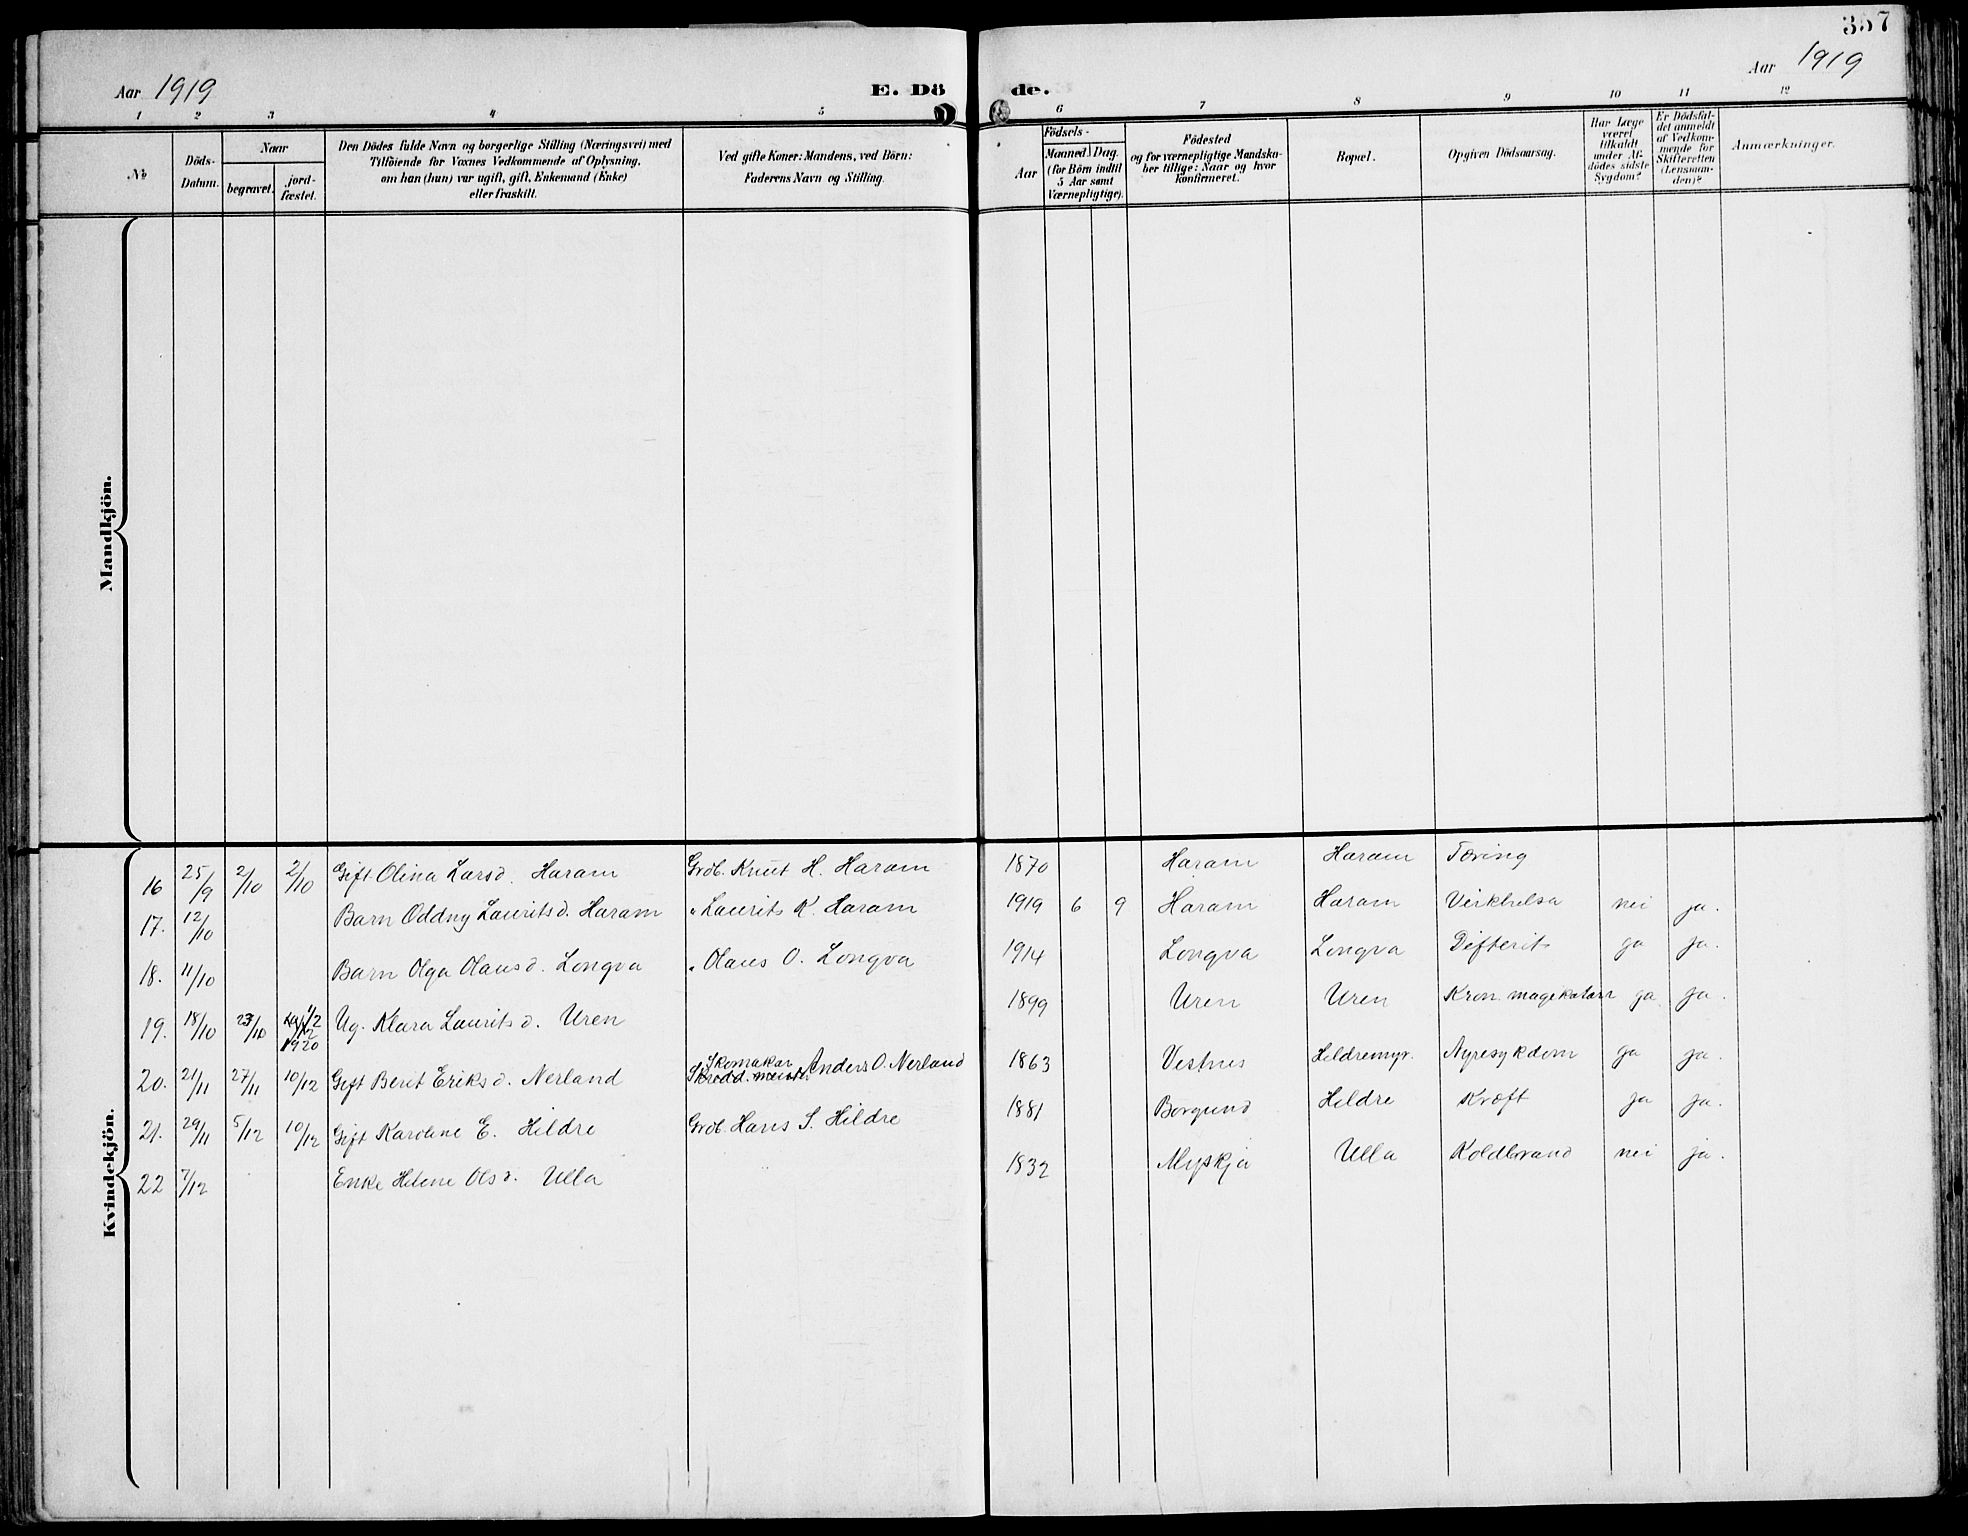 357
Aar 1919
E. Dö
de.
Aar 1919
1 2 3 4 5 6 7 8 9 10 11 12
№
Döds-
Datum.
Naar
begravet.
jord-
fæstet.
Den Dödes fulde Navn og borgerlige Stilling (Næringsvei) med
Tilföiende for Voxnes Vedkommende af Oplysning,
om han (hun) var ugift, gift, Enkemand (Enke)
eller fraskilt.
Ved gifte Koner: Mandens, ved Börn:
Faderens Navn og Stilling.
Födsels-
Aar
Maaned. Dag.
(for Börn indtil
5 Aar samt
Værnepligtige).
Födested
og for værnepligtige Mandska-
ber tillige: Naar og hvor
konfirmeret.
Bopæl.
Opgiven Dödsaarsag.
Har Læge
været
tilkaldt
under Af-
dödes sidste
Sygdom?
Er Dödsfal-
det anmeldt
af Vedkom-
mende for
Skifteretten
(Lensman-
den)?
Anmærkninger.
Mandkjön.
Kvindekjön.
16 25/9 2/10 2/10 Gift Olina Larsd. Haram Grdb. Knut H. Haram 1870 Haram Haram Tæring
17. 12/10 Barn Oddny Lauritsd. Haram " Laurits K. Haram 1919 6 9 Haram Haram Veikhelsa nei ja.
18. 11/10 Barn Olga Olausd. Longva " Olaus O. Longva 1914 Longva Longva Difterit ja ja.
19. 18/10 23/10 1920 Ug. Klara Lauritsd. Uren 1899 Uren Uren Kron. magekatarr ja ja.
20. 21/11 27/11 10/12 Gift Berit Eriksd. Nerland Skomakar Anders O. Nerland 1863 Vestnes Hildremyr. Nyresykdom ja ja.
21. 29/11 5/12 10/12 Gift Karoline E. Hildre Grdb. Hans S. Hildre 1881 Borgund Hildre Kræft ja ja.
22 7/12 Enke Helene Olsd. Ulla 1832 Myskja Ulla Koldbrand nei ja.